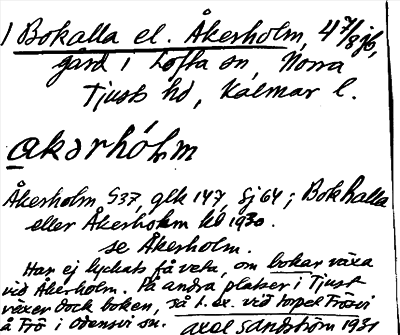 1 Bokalla el. Åkerholm, 4 7/8 jb,
gård i Lofta sn, Norra
Tjust hd, Kalmar l.
akərhólm
Åkerholm, S37, glk 147, Sj 64; Bokhalla
eller Åkerholm kb 1930.
se Åkerholm.
Har ej lyckats få veta, om bokar växa
vid Åkerholm. På andra platser i Tjust
växer dock boken, så t. ex. vid torpet Frösvi
å Frö i Odensvi sn. Axel Sandström 1931